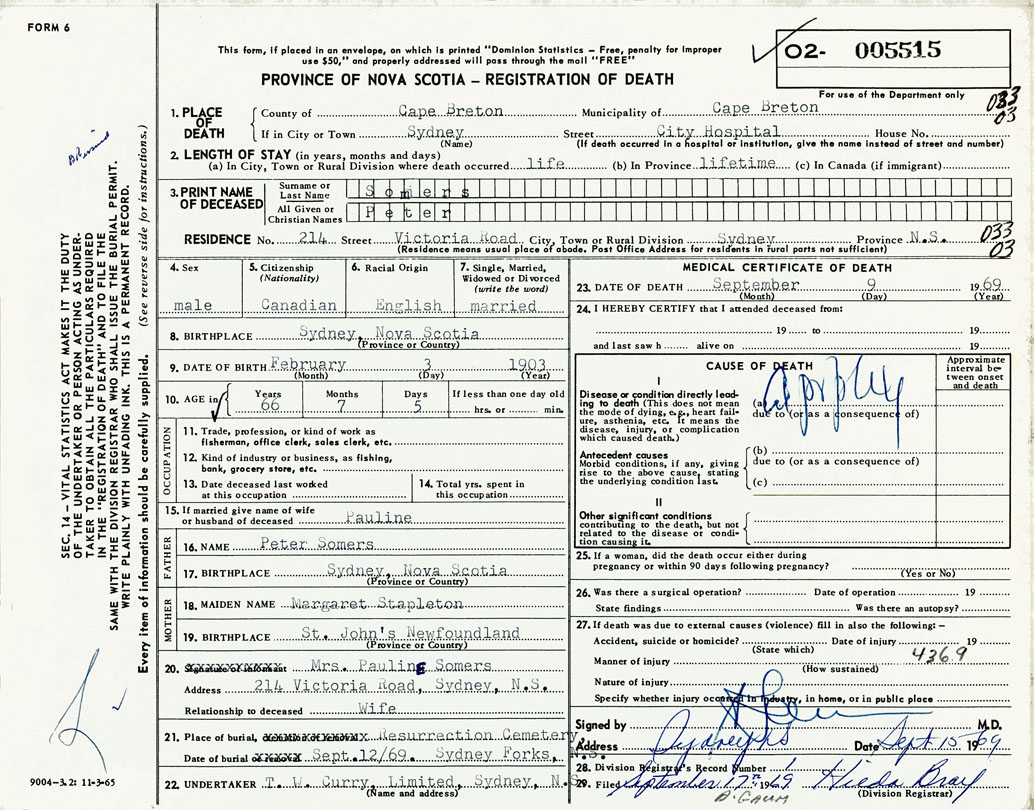 FORM 6
This form, if placed in an envelope, on which is printed "Dominion Statistics – Free, penalty for improper
use $50," and properly addressed will pass through the mail "FREE"
PROVINCE OF NOVA SCOTIA – REGISTRATION OF DEATH
02- 005515
For use of the Department only
033
03
1. PLACE OF DEATH
County of Cape Breton Municipality of Cape Breton
If in City or Town Sydney Street City Hospital House No.
(Name) (If death occurred in a hospital or institution, give the name instead of street and number)
2. LENGTH OF STAY (in years, months and days)
(a) In City, Town or Rural Division where death occurred life (b) In Province lifetime (c) In Canada (if immigrant)
3. PRINT NAME OF DECEASED
Surname or Last Name Somers
All Given or Christian Names Peter
RESIDENCE No. 214 Street Victoria Road City, Town or Rural Division Sydney Province N.S.
(Residence means usual place of abode. Post Office Address for residents in rural parts not sufficient)
033
03
4. Sex
male
5. Citizenship
(Nationality)
Canadian
6. Racial Origin
English
7. Single, Married,
Widowed or Divorced
(write the word)
married
8. BIRTHPLACE Sydney, Nova Scotia
(Province or Country)
9. DATE OF BIRTH February 3 1903
(Month) (Day) (Year)
10. AGE in Years Months Days If less than one day old
66 7 5 hrs. or min.
OCCUPATION
11. Trade, profession, or kind of work as
fisherman, office clerk, sales clerk, etc.
12. Kind of industry or business, as fishing,
bank, grocery store, etc.
13. Date deceased last worked
at this occupation
14. Total yrs. spent in
this occupation
15. If married give name of wife
or husband of deceased Pauline
FATHER
16. NAME Peter Somers
17. BIRTHPLACE Sydney, Nova Scotia
(Province or Country)
MOTHER
18. MAIDEN NAME Margaret Stapleton
19. BIRTHPLACE St. John's Newfoundland
(Province or Country)
20. Mrs. Pauline Somers
Address 214 Victoria Road, Sydney, N.S.
Relationship to deceased Wife
21. Place of burial, Resurrection Cemetery,
Date of burial Sept.12/69. Sydney Forks, N.S.
22. UNDERTAKER T. W. Curry, Limited, Sydney, N.S.
(Name and address)
MEDICAL CERTIFICATE OF DEATH
23. DATE OF DEATH September 9 1969
(Month) (Day) (Year)
24. I HEREBY CERTIFY that I attended deceased from:
19 to 19
and last saw h alive on 19
CAUSE OF DEATH
Approximate
interval be-
tween onset
and death
I
Disease or condition directly lead-
ing to death (This does not mean
the mode of dying, e.g., heart fail-
ure, asthenia, etc. It means the
disease, injury, or complication
which caused death.)
(a)
due to (or as a consequence of)
Antecedent causes
Morbid conditions, if any, giving
rise to the above cause, stating
the underlying condition last.
(b)
due to (or as a consequence of)
(c)
II
Other significant conditions
contributing to the death, but not
related to the disease or condi-
tion causing it.
25. If a woman, did the death occur either during
pregnancy or within 90 days following pregnancy?
(Yes or No)
26. Was there a surgical operation? Date of operation 19
State findings Was there an autopsy?
27. If death was due to external causes (violence) fill in also the following: –
Accident, suicide or homicide? Date of injury 19
(State which)
4369
Manner of injury
(How sustained)
Nature of injury
Specify whether injury occurred in industry, in home, or in public place
Signed by M.D.
Address Sydney NS Date Sept 15 1969
28. Division Registrar's Record Number 1
29. Filed September 17th 1969 Hilda Bray
(Division Registrar)
SEC. 14 – VITAL STATISTICS ACT MAKES IT THE DUTY
OF THE UNDERTAKER OR PERSON ACTING AS UNDER-
TAKER TO OBTAIN ALL THE PARTICULARS REQUIRED
IN THE "REGISTRATION OF DEATH" AND TO FILE THE
SAME WITH THE DIVISION REGISTRAR WHO SHALL ISSUE THE BURIAL PERMIT.
WRITE PLAINLY WITH UNFADING INK. THIS IS A PERMANENT RECORD.
Every item of information should be carefully supplied. (See reverse side for instructions.)
9004-3.2: 11-3-65